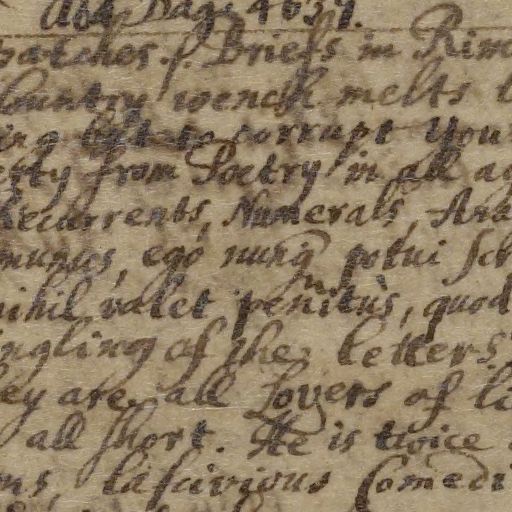 Dag. 4637.
patches. Briefs in Rim
Country wench melts
ing to corrupt You
erty from Poetry in all ag
Recurrents, Numerals, Ana
mumos, ego nunq potui scr
nihil valet penitùs, quod
ingling of the letters
hey are all Lovers of li
all short. He is twice
ms, lascivious Comedi